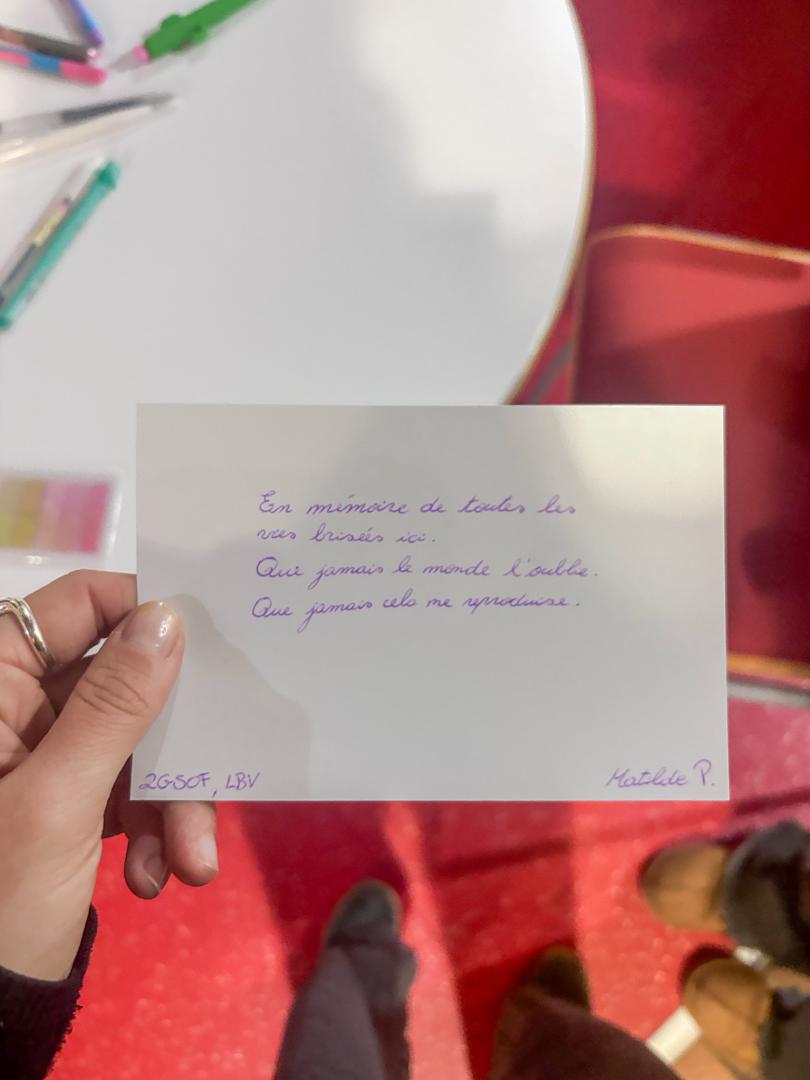 En mémoire de toutes les
vies brisées ici.
Que jamais le monde l'oublie.
Que jamais cela me reproduise.
2GSOF, LBV
Matilde P.